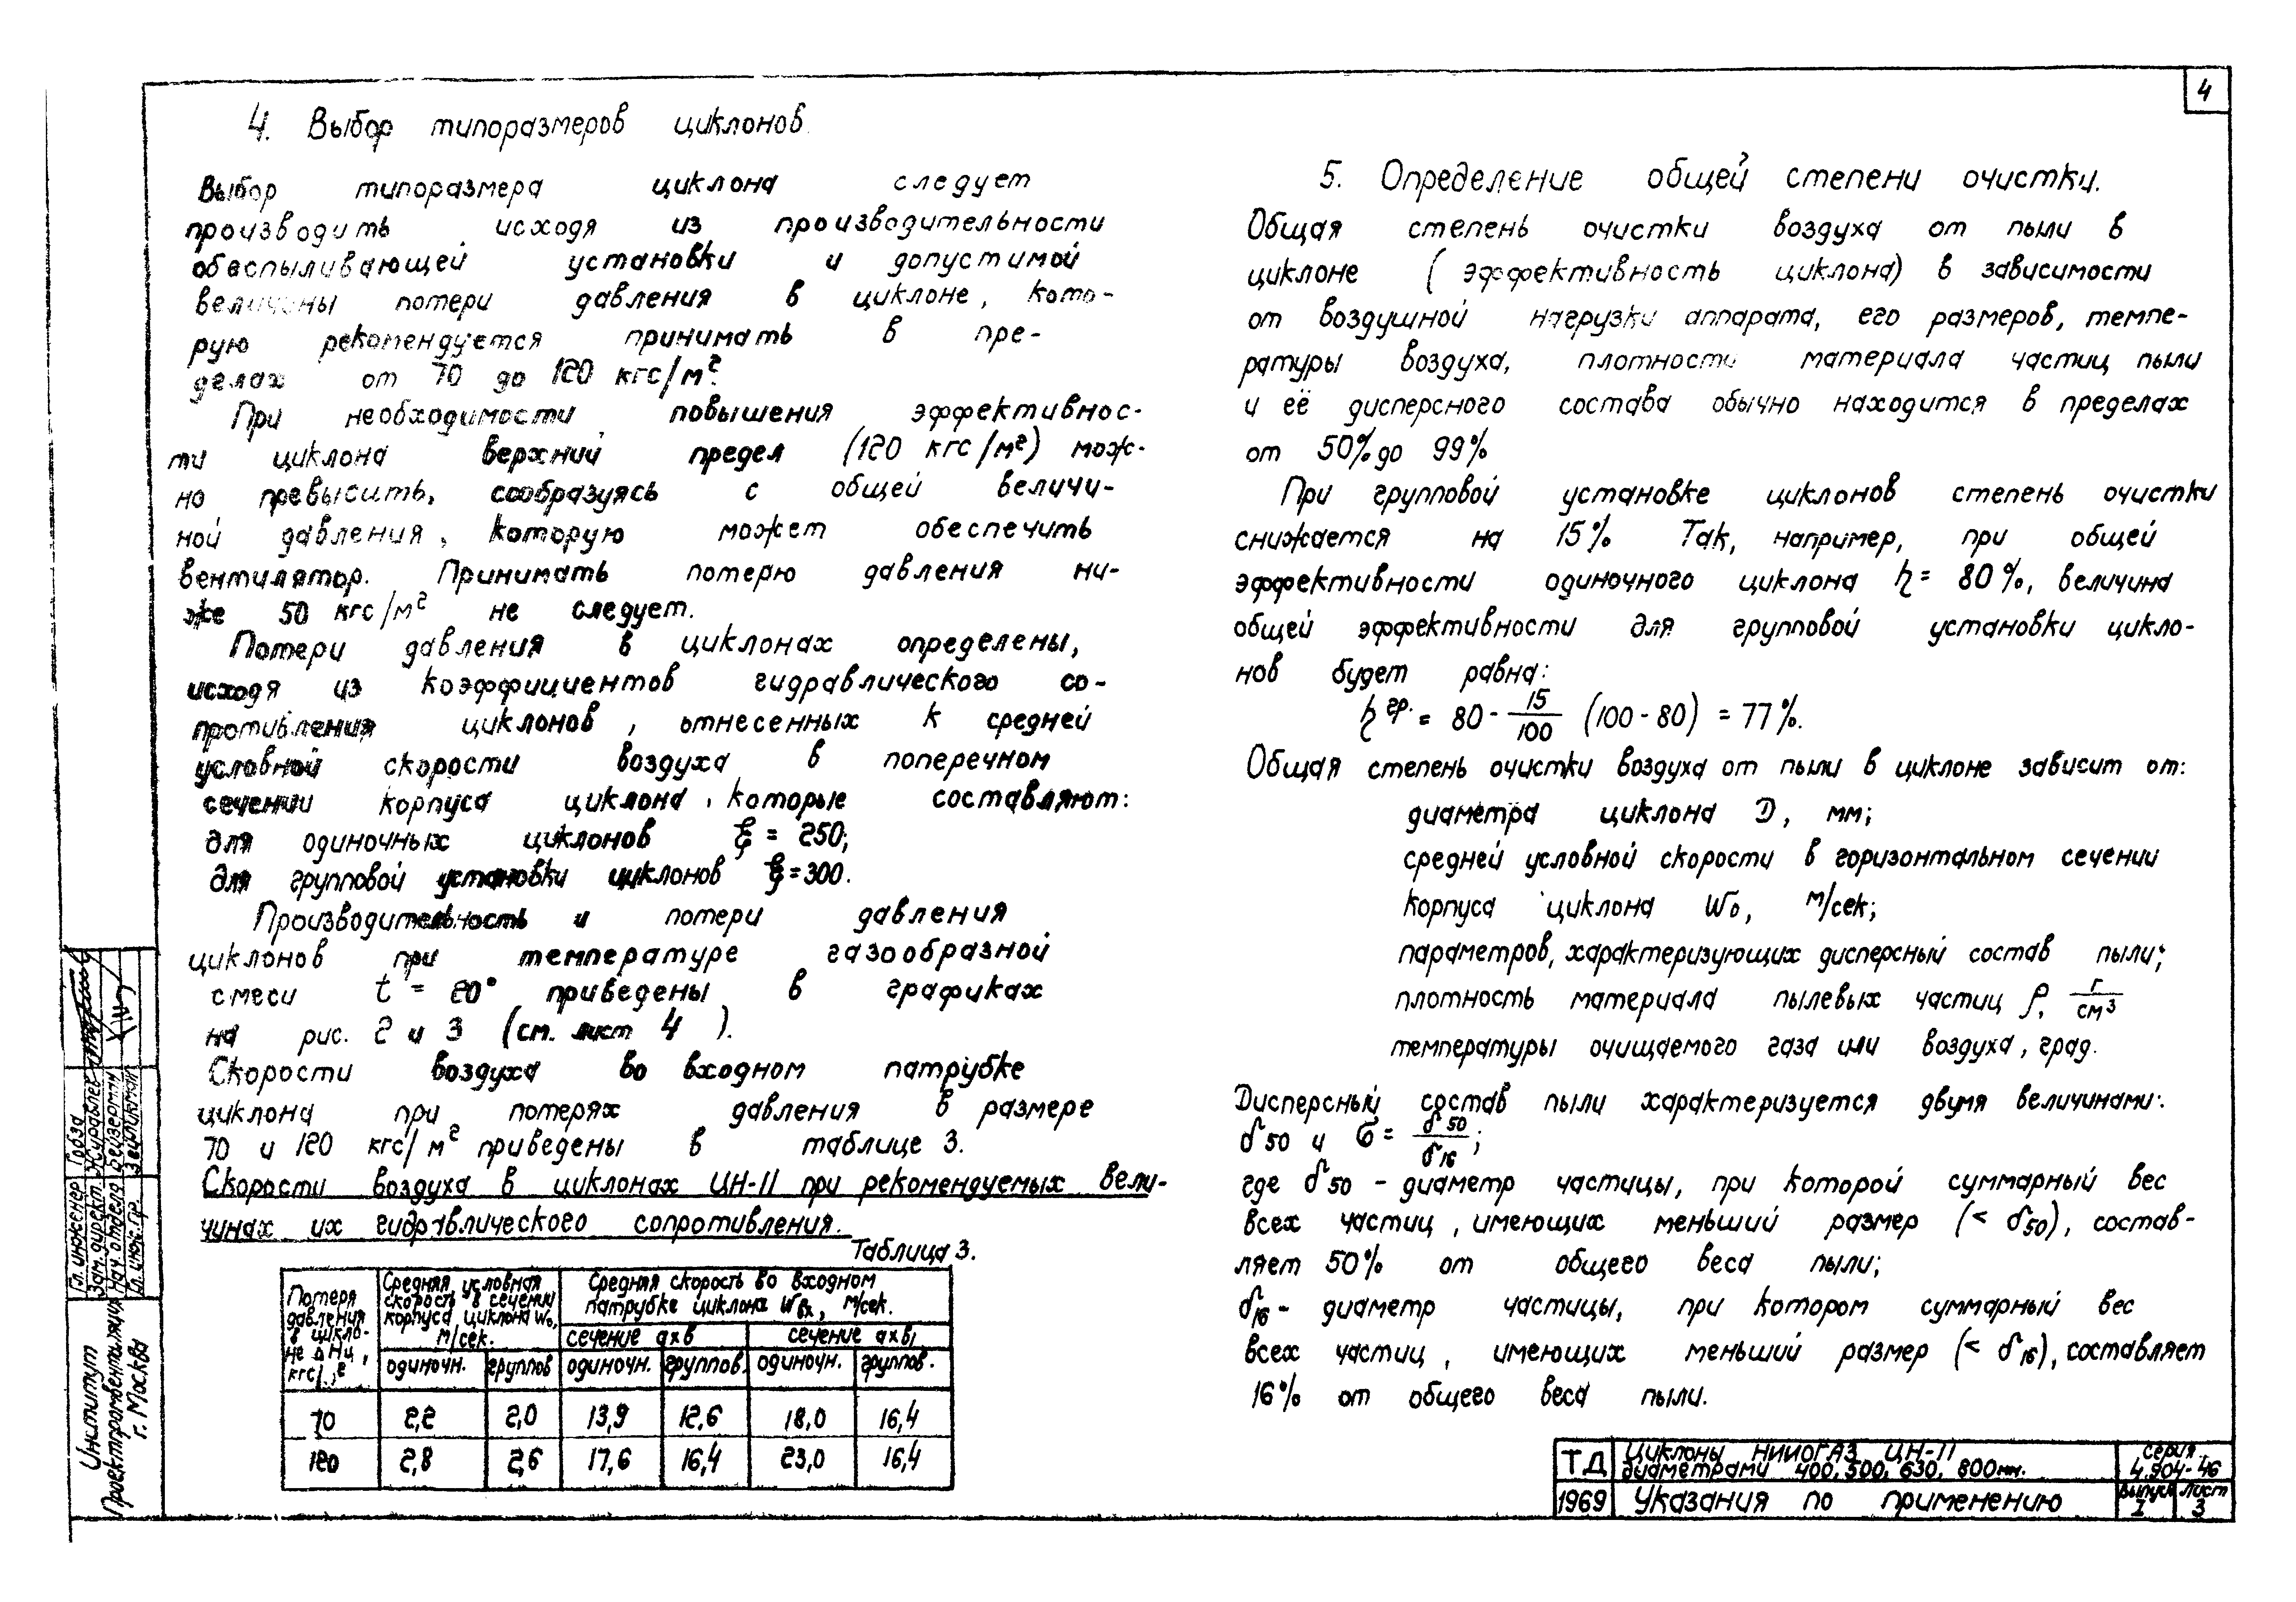 4
4. Выбор типоразмеров циклонов.
Выбор типоразмера циклона следует
производить исходя из производительности
обеспыливающей установки и допустимой
величины потери давления в циклоне, кото-
рую рекомендуется принимать в пре-
делах от 70 до 120 кгс/м².
При необходимости повышения эффективнос-
ти циклона верхний предел (120 кгс/м²) мож-
но превысить, сообразуясь с общей величи-
ной давления, которую может обеспечить
вентилятор. Принимать потерю давления ни-
же 50 кгс/м² не следует.
Потери давления в циклонах определены,
исходя из коэффициентов гидравлического со-
противления циклонов, отнесенных к средней
условной скорости воздуха в поперечном
сечении корпуса циклона, которые составляют:
для одиночных циклонов ξ = 250;
для групповой установки циклонов ξ = 300.
Производительность и потери давления
циклонов при температуре газообразной
смеси t = 20° приведены в графиках
на рис. 2 и 3 (см. лист 4 ).
Скорости воздуха во входном патрубке
циклона при потерях давления в размере
70 и 120 кгс/м² приведены в таблице 3.
Скорости воздуха в циклонах ЦН-11 при рекомендуемых вели-
чинах их гидравлического сопротивления.
Таблица 3.
Потеря давления в цикло- не ΔНц,
Средняя условная скорость в сечении корпуса циклона W₀, м/сек.
Средняя скорость во входном патрубке циклона Wвх, м/сек.
сечение ахв сечение ахв₁
одиночн. группов одиночн. группов. одиночн. группов.
70 2,2 2,0 13,9 12,6 18,0 16,4
120 2,8 2,6 17,6 16,4 23,0 16,4
5. Определение общей степени очистки.
Общая степень очистки воздуха от пыли в
циклоне (эффективность циклона) в зависимости
от воздушной нагрузки аппарата, его размеров, темпе-
ратуры воздуха, плотности материала частиц пыли
и её дисперсного состава обычно находится в пределах
от 50% до 99%
При групповой установке циклонов степень очистки
снижается на 15% Так, например, при общей
эффективности одиночного циклона η = 80%, величина
общей эффективности для групповой установки цикло-
нов будет равна:
η гр. = 80 - 15/100 (100 - 80) = 77%.
Общая степень очистки воздуха от пыли в циклоне зависит от:
диаметра циклона D, мм;
средней условной скорости в горизонтальном сечении
корпуса циклона W₀, м/сек;
параметров, характеризующих дисперсный состав пыли;
плотность материала пылевых частиц ρ, г/см³
температуры очищаемого газа или воздуха, град.
Дисперсный состав пыли характеризуется двумя величинами:
δ50 и σ = δ50/δ16;
где δ50 - диаметр частицы, при которой суммарный вес
всех частиц, имеющих меньший размер (< δ50), состав-
ляет 50% от общего веса пыли;
δ16 - диаметр частицы, при котором суммарный вес
всех частиц, имеющих меньший размер (< δ16), составляет
16% от общего веса пыли.
Гл. инженер Гобза
Зам. директ. Журавлев
Нач. отдела
Гл. инж. пр.
Институт
Проектпромвентиляция
г. Москва
ТД Циклоны НИИОГАЗ ЦН-11
диаметрами 400, 500, 630, 800мм.
серия
4.904-46
1969 Указания по применению
Выпуск I
Лист 3